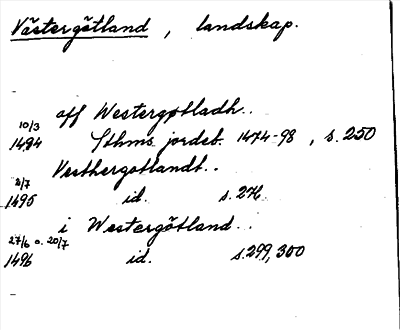 Västergötland, landskap.
aff Westergøtladh..
10/3
1494 Sthms jordeb. 1474-98, s. 250
Vesthergotlandt..
2/7
1495 id. s. 276.
i Westergötland..
27/6 o. 20/7
1496 id. s. 299, 300